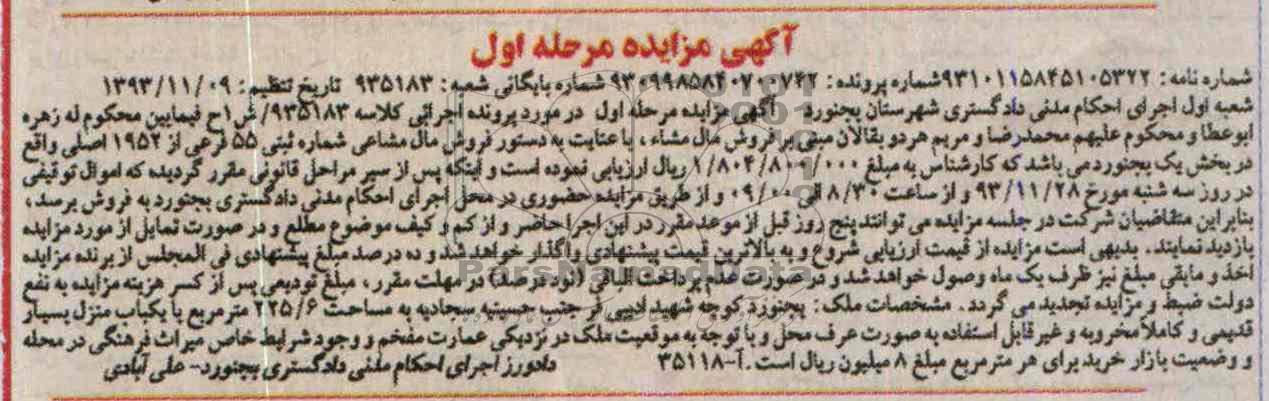 آگهی مزایده مرحله اول
شماره نامه: ۹۳۱۰۱۱۵۸۴۵۱۰۵۳۷۲ شماره پرونده: ۹۳۰۹۹۸۵۸۴۰۷۰۰۷۴۲ شماره بایگانی شعبه: ۹۳۵۱۸۳ تاریخ تنظیم: ۱۳۹۳/۱۱/۰۹
شعبه اول اجرای احکام مدنی دادگستری شهرستان بجنورد آگهی مزایده مرحله اول در مورد پرونده اجرائی کلاسه ۹۳۵۱۸۳/ش۱ح فیمابین محکوم له زهره
ابوعطا و محکوم علیهم محمدرضا و مریم هر دو بقالان مبنی بر فروش مال مشاء، با عنایت به دستور فروش مال مشاعی شماره ثبتی ۵۵ فرعی از ۱۹۵۲ اصلی واقع
در بخش یک بجنورد می باشد که کارشناس به مبلغ ۱/۸۰۴/۸۰۰/۰۰۰ ریال ارزیابی نموده است و اینکه پس از سیر مراحل قانونی مقرر گردیده که اموال توقیفی
در روز سه شنبه مورخ ۹۳/۱۱/۲۸ و از ساعت ۸/۳۰ الی ۰۹/۰۰ و از طریق مزایده حضوری در محل اجرای احکام مدنی دادگستری بجنورد به فروش برسد،
بنابراین متقاضیان شرکت در جلسه مزایده می توانند پنج روز قبل از موعد مقرر در این اجرا حاضر و از کم و کیف موضوع مطلع و در صورت تمایل از مورد مزایده
بازدید نمایند. بدیهی است مزایده از قیمت ارزیابی شروع و به بالاترین قیمت پیشنهادی واگذار خواهد شد و ده درصد مبلغ پیشنهادی فی المجلس از برنده مزایده
اخذ و مابقی مبلغ نیز ظرف یک ماه وصول خواهد شد و در صورت عدم پرداخت الباقی (نود درصد) در مهلت مقرر، مبلغ تودیعی پس از کسر هزینه مزایده به نفع
دولت ضبط و مزایده تجدید می گردد. مشخصات ملک: بجنورد کوچه شهید ادیبی فر جنب حسینیه سجادیه به مساحت ۲۲۵/۶ مترمربع با یکباب منزل بسیار
قدیمی و کاملاً مخروبه و غیر قابل استفاده به صورت عرف محل و با توجه به موقعیت ملک در نزدیکی عمارت مفخم و وجود شرایط خاص میراث فرهنگی در محله
و وضعیت بازار خرید برای هر مترمربع مبلغ ۸ میلیون ریال است. آ-۳۵۱۱۸ دادورز اجرای احکام مدنی دادگستری بجنورد- علی آبادی
ParsNamadData